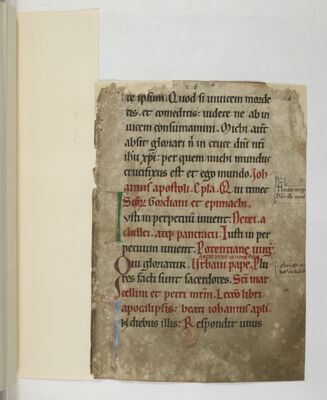 te ipsum. Quod si inuicem morde
tis. et comeditis: uidete ne ab in
uicem consumamini. Michi aut̄
absit gloriari n̄ in cruce dn̄i nr̄i
ihu xp̄i: per quem michi mundus
crucifixus est et ego mundo. Joh
annis apostoli. Ep̄la. Qui timet
Scōr̄ Gordiani et epimachi.
Iusti in perpetuum uiuent. Nerei. a
chillei. atq; pancracii. Iusti in per
petuum uiuent. Potentiane uirḡ.
Qui gloriatur. Urbani pape. Plu
res facti sunt sacerdotes. Sc̄i mar
cellini et petri mr̄m. Lectō libri
apocalipsis: beati iohannis apli.
In diebus illis: Respondit unus